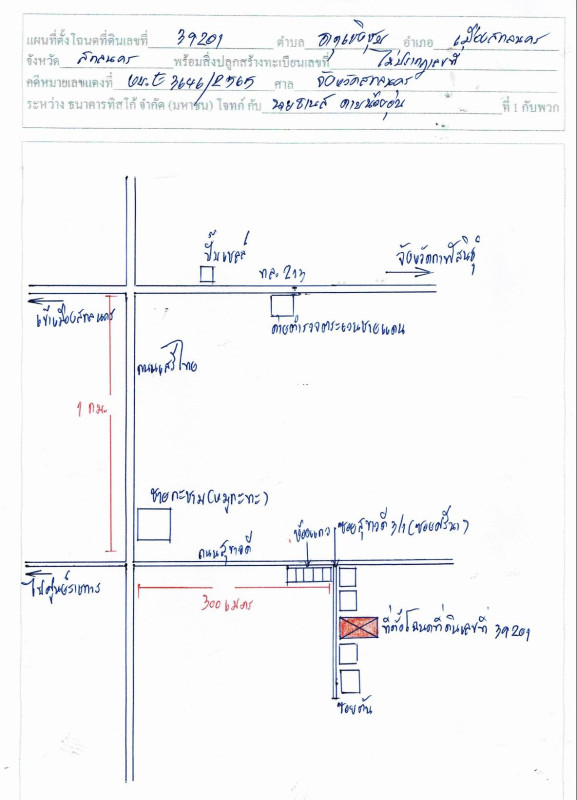 แผนที่ตั้งโฉนดที่ดินเลขที่ 39201 ตำบล ธาตุเชิงชุม อำเภอ เมืองสกลนคร
จังหวัด สกลนคร พร้อมสิ่งปลูกสร้างทะเบียนเลขที่ ไม่ปรากฏเลขที่
คดีหมายเลขแดงที่ ผบ.E 3646/2565 ศาล จังหวัดสกลนคร
ระหว่าง ธนาคารทิสโก้ จำกัด (มหาชน) โจทก์ กับ นายธเนส ที่ 1 กับพวก
ปั๊มเชลล์
จังหวัดกาฬสินธุ์
ทล. 213
เข้าเมืองสกลนคร
ค่ายตำรวจตระเวนชายแดน
ถนนเสรีไทย
1 กม.
(หมูกะทะ)
ห้องแถว
ซอยสุขาวดี 3/1
ถนนสุขาวดี
ไปศูนย์ราชการ
300 เมตร
ที่ตั้งโฉนดที่ดินเลขที่ 39201
ซอยตัน